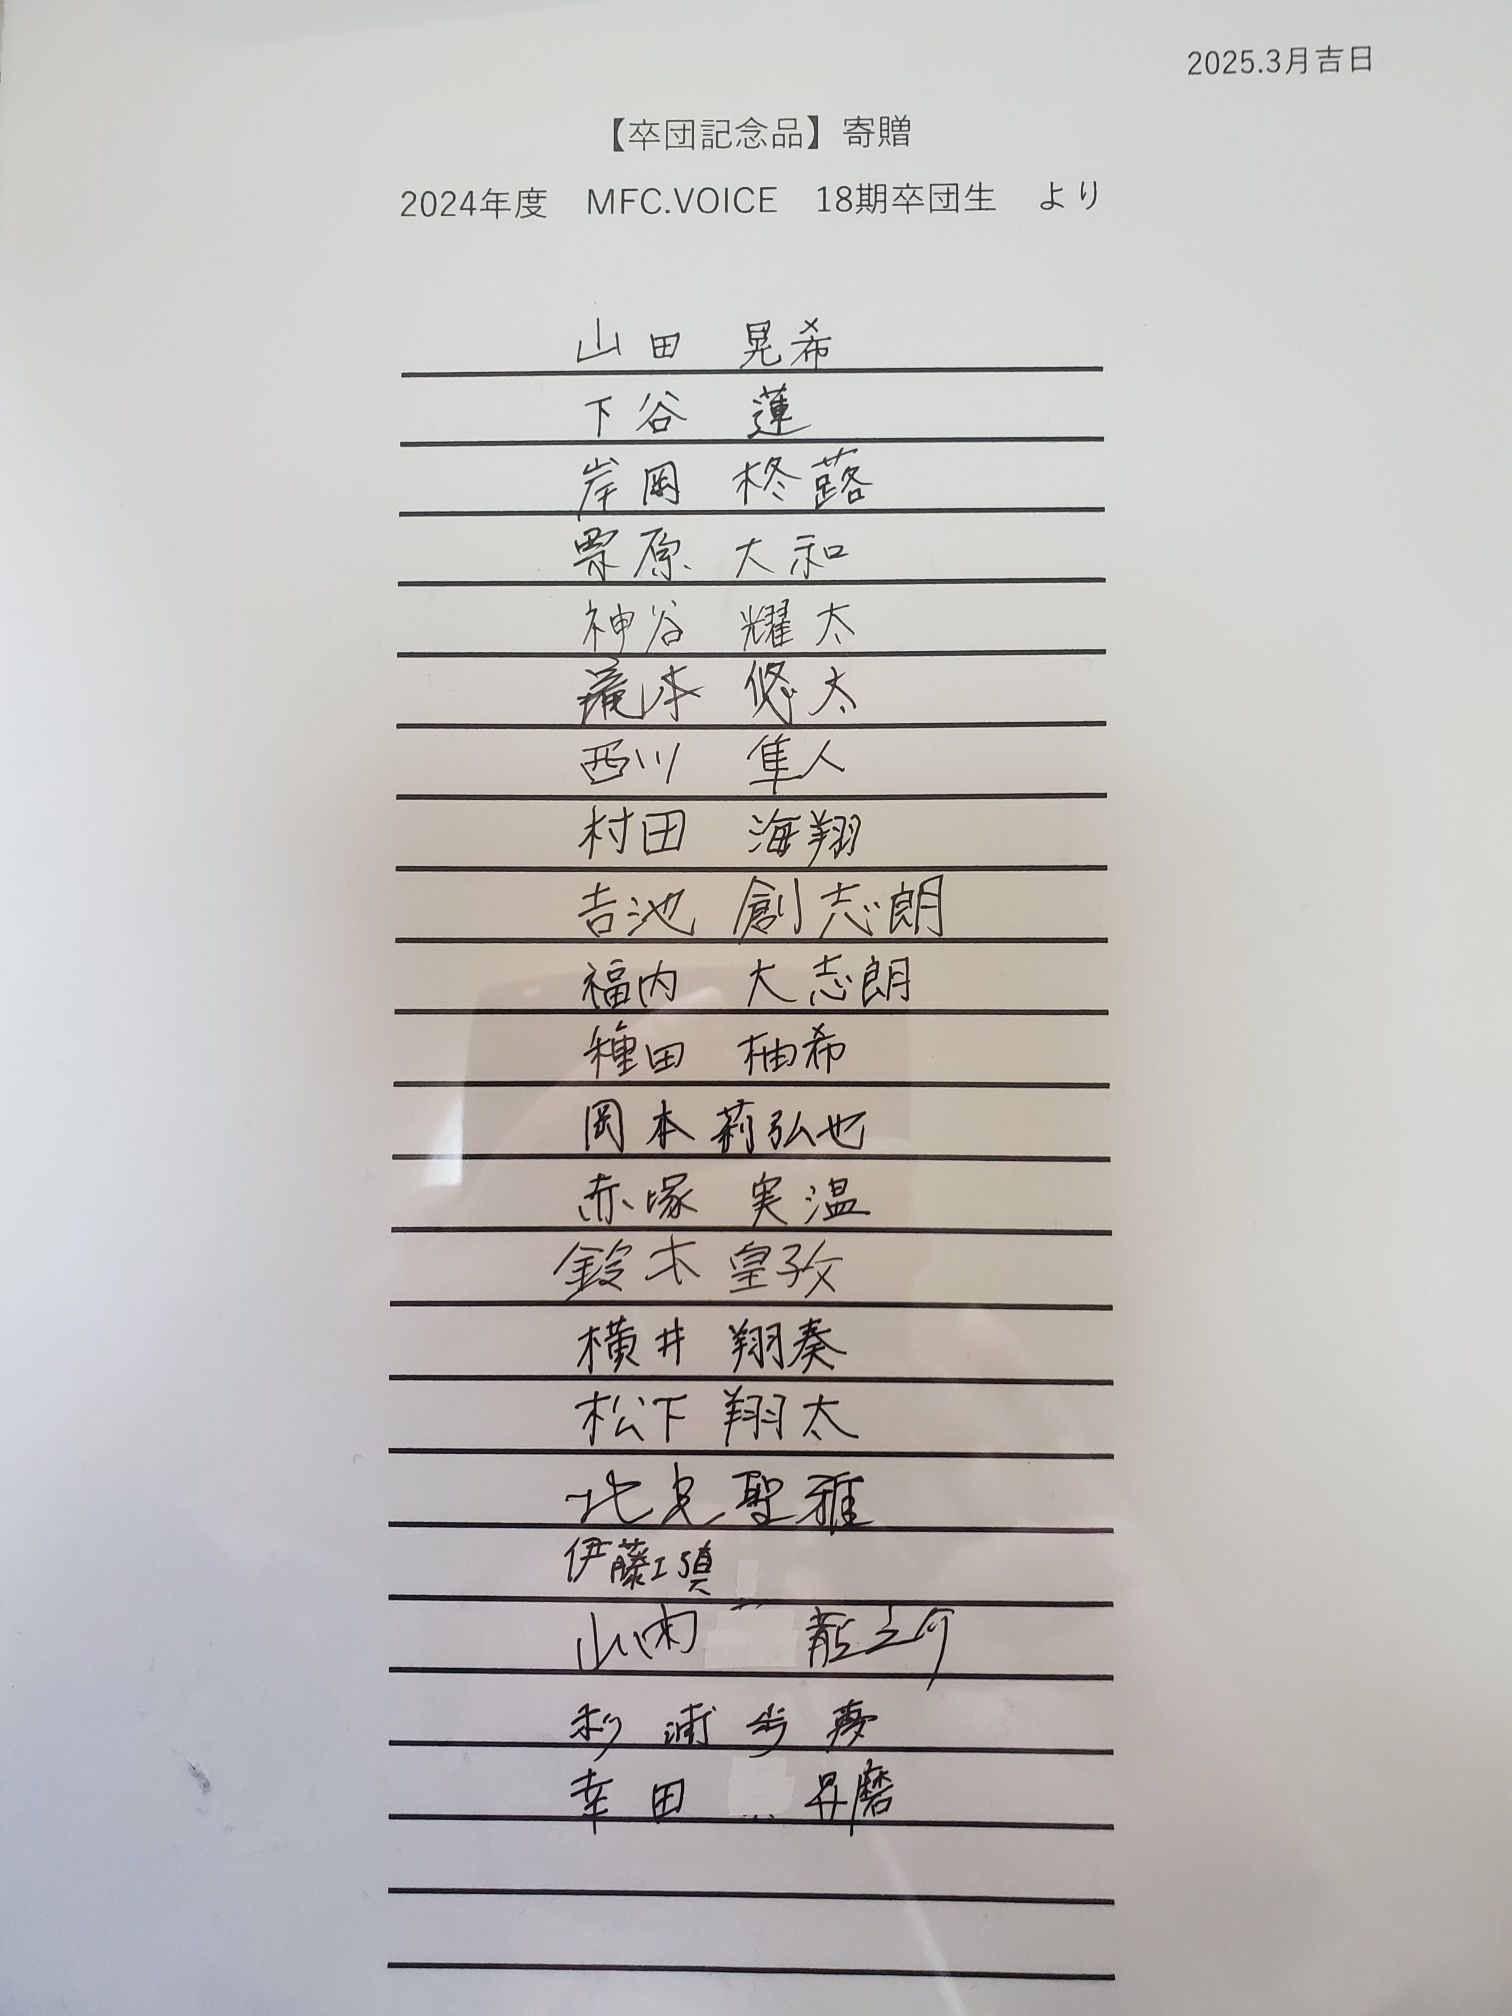 2025.3月吉日
【卒団記念品】寄贈
2024年度　MFC.VOICE　18期卒団生　より
山田　晃希
下谷　蓮
岸岡　柊蕗
栗原　大和
神谷　耀太
滝本　悠太
西川　隼人
村田　海翔
吉池　創志朗
福内　大志朗
種田　柚希
岡本　莉弘也
赤塚　実温
鈴木　皇孜
横井　翔奏
松下　翔太
北見　聖雅
伊藤
山内　龍之介
杉浦　歩夢
幸田　昇磨